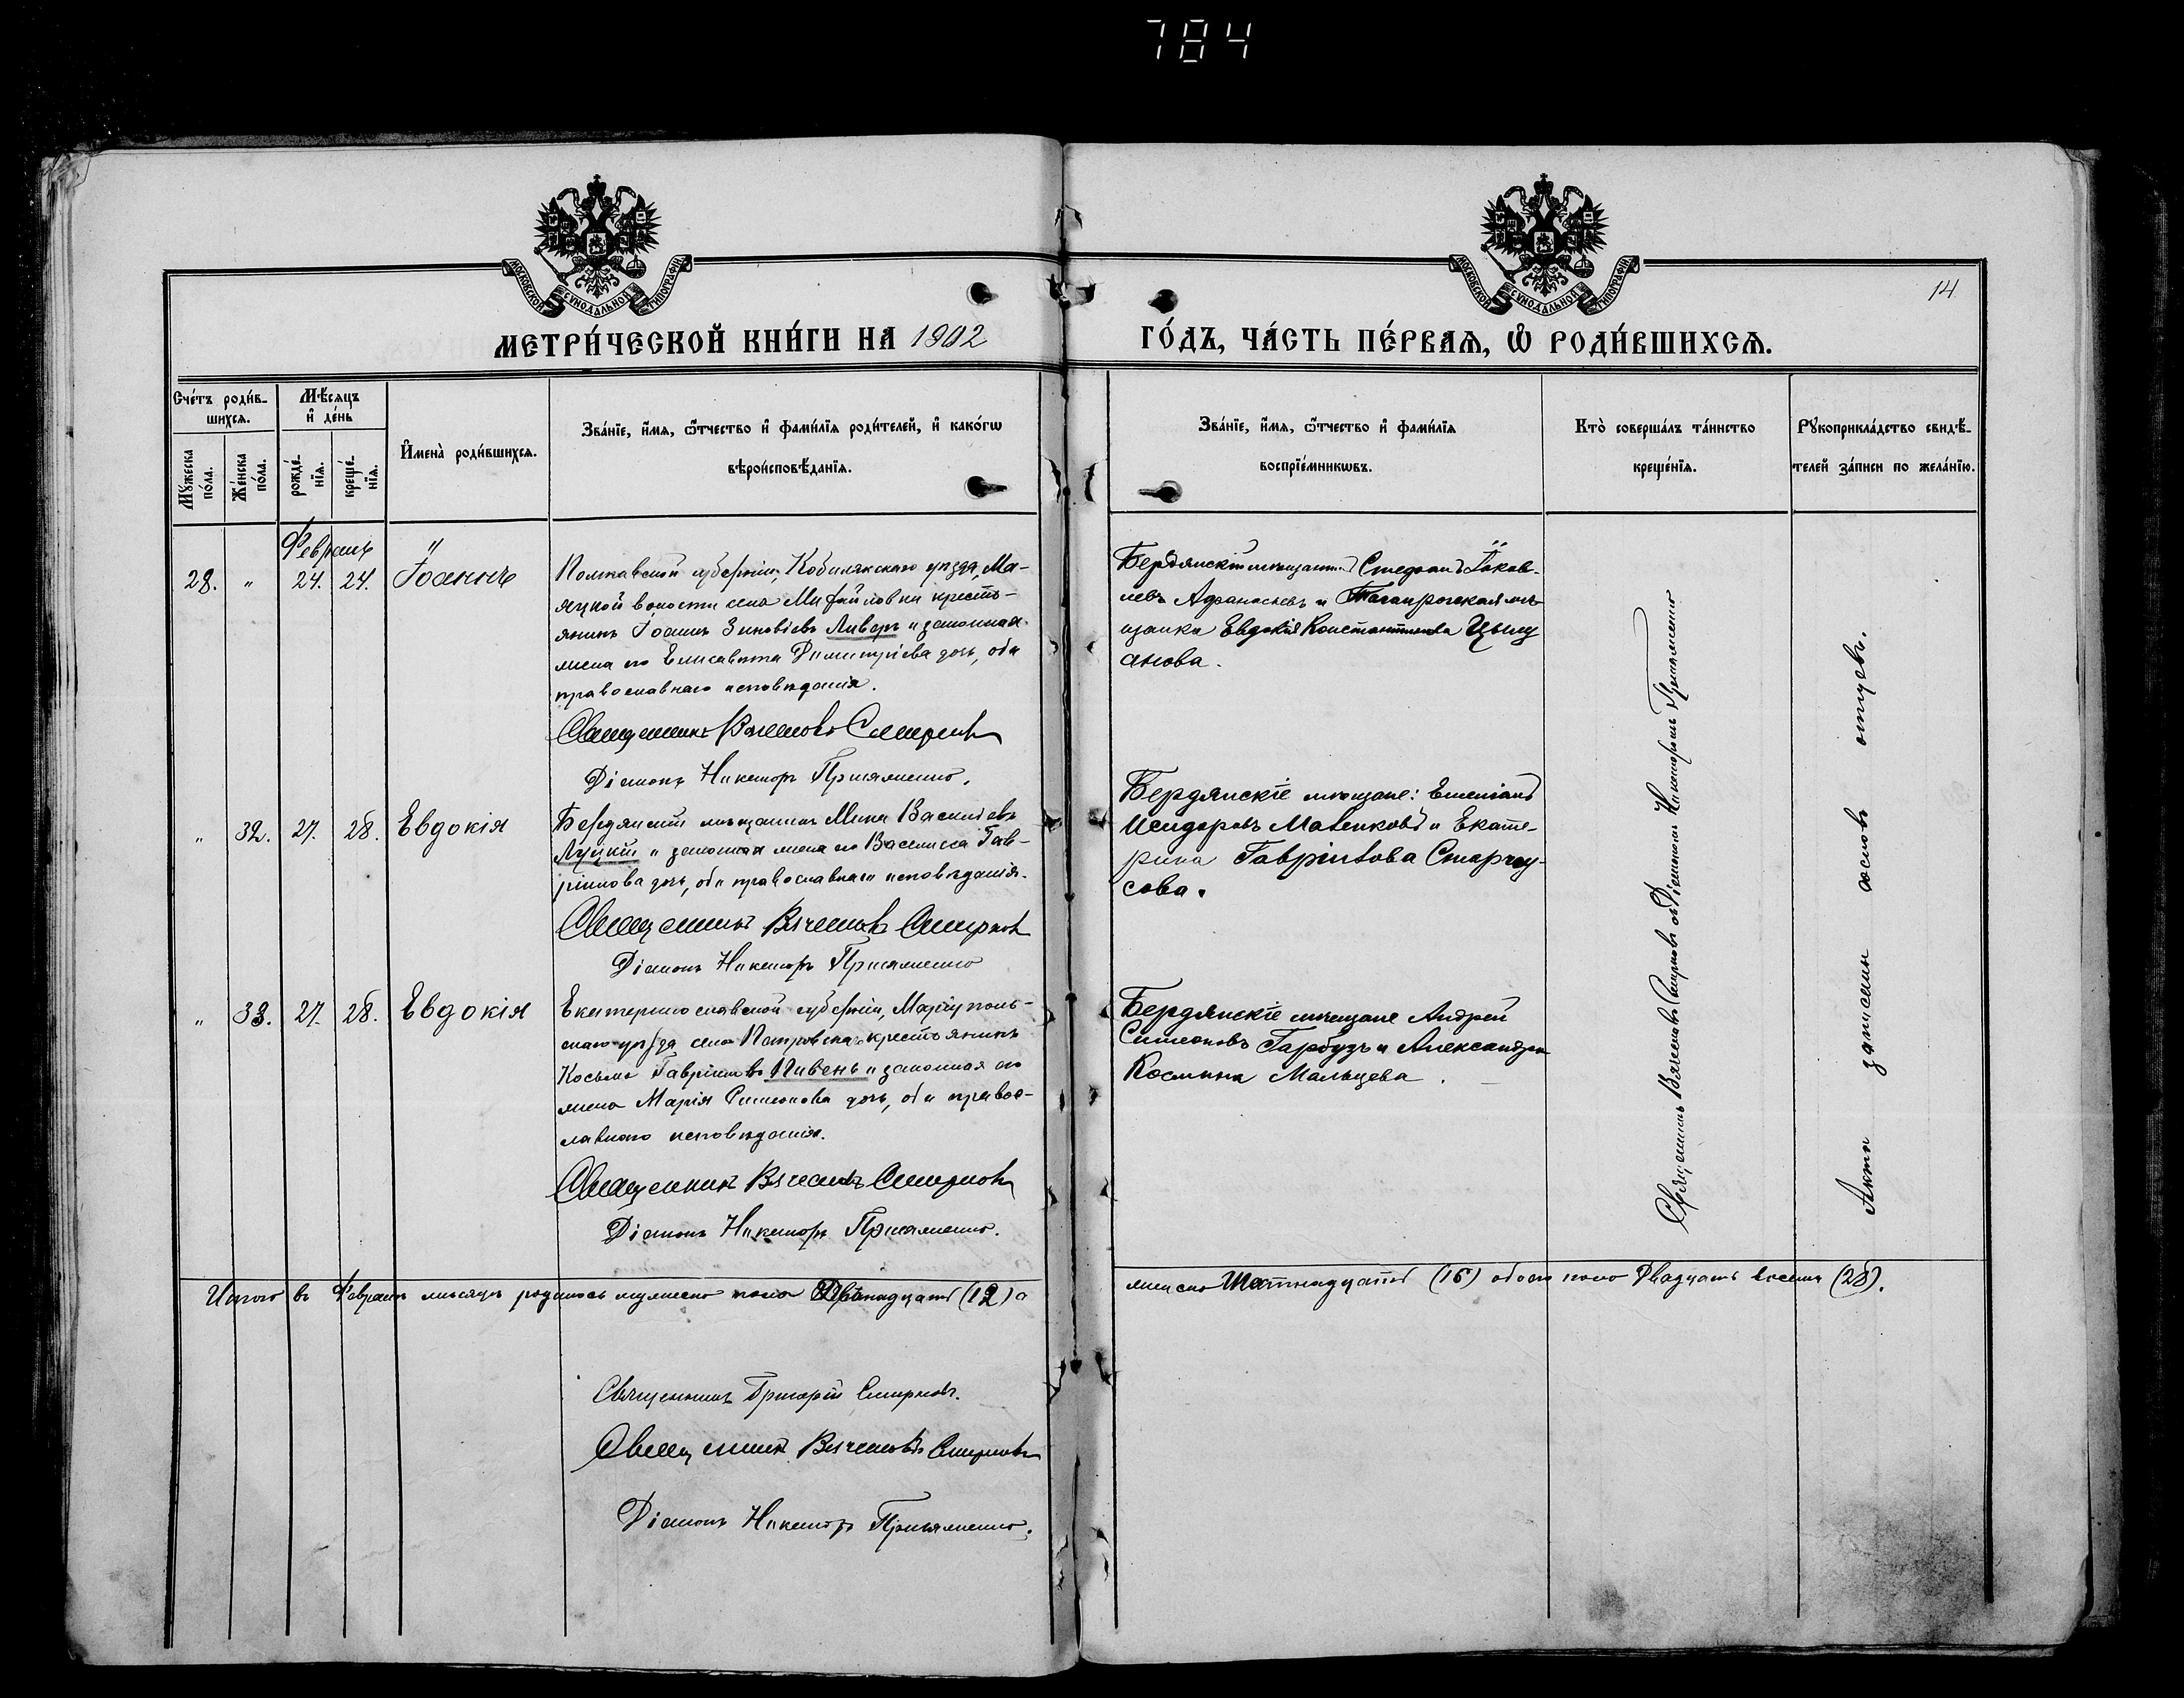 784
МОСКОВСКОЙ СѴНОДАЛЬНОЙ ТИПОГРАФІИ
МОСКОВСКОЙ СѴНОДАЛЬНОЙ ТИПОГРАФІИ
14
МЕТРИ́ЧЕСКОЙ КНИ́ГИ НА 1902
ГО́ДЪ, ЧА́СТЬ ПЕ́РВАѦ, Ѡ҆ РОДИ́ВШИХСѦ.
Сче́тъ роди́в-
шихсѧ.
Мѣ́сѧцъ
и҆ де́нь
Мꙋ́жеска
по́ла.
Же́нска
по́ла.
рожде́-
нїѧ.
креще́-
нїѧ.
И҆мена̀ роди́вшихсѧ.
Зва́нїе, и҆́мѧ, ѻ҆́тчество и҆ фами́лїѧ роди́телей, и҆ како́гѡ
вѣроисповѣ́данїѧ.
Зва́нїе, и҆́мѧ, ѻ҆́тчество и҆ фами́лїѧ
воспрїе́мникѡвъ.
Кто̀ соверша́лъ та́инство
креще́нїѧ.
Рꙋкоприкла́дство свидѣ́-
телей за́писи по жела́нїю.
Февраль
28. „ 24. 24. Іоаннъ
Полтавской губерніи, Кобилякскаго уѣзда, Ма-
яцкой волости села Михайловки кресть-
янинъ Іоаннъ Зиновіевъ Ливеръ и законная
жена его Елисавета Димитріева дочь, оба
православнаго исповѣданія.
Священникъ Вячеславъ Смирновъ
Діаконъ Никаноръ Пришляменко.
Бердянскій мѣщанинъ Стефанъ Іаков-
левъ Афанасьевъ и Таганрогская мѣ-
щанка Евдокія Константинова Цыц
анова.
„ 32. 27. 28. Евдокія
Бердянскій мѣщанинъ Мина Васильевъ
Луцкій и законная жена его Василиса Гав-
ріилова дочь, оба православнаго исповѣданія.
Священникъ Вячеславъ Смирновъ
Діаконъ Никаноръ
Бердянскіе мѣщане: Емеліанъ
Исидоровъ Мавенковъ и Екате-
рина Гавріилова Старчоу-
сова.
„ 33. 27. 28. Евдокія
Екатеринославской губерніи, Маріуполь-
скаго уѣзда села Петровскаго крестьянинъ
Косьма Гавріиловъ Пивень и законная его
жена Марія Симеонова дочь, оба правос-
лавнаго исповѣданія.
Священникъ Вячеславъ Смирновъ
Діаконъ Никаноръ
Бердянскіе мѣщане Андрей
Симеоновъ Гарбузъ и Александра
Космина Мальцева.
Священникъ Вячеславъ Смирновъ съ Діакономъ Никаноромъ
Акты записаны со словъ отцевъ.
Итого въ Февралѣ мѣсяцѣ родилось мужеска пола Двѣнадцать (12) а
женска Шестнадцать (16) обоего пола Двадцать восемь (28).
Священникъ Григорій Смирновъ.
Священникъ Вячеславъ Смирновъ
Діаконъ Никаноръ